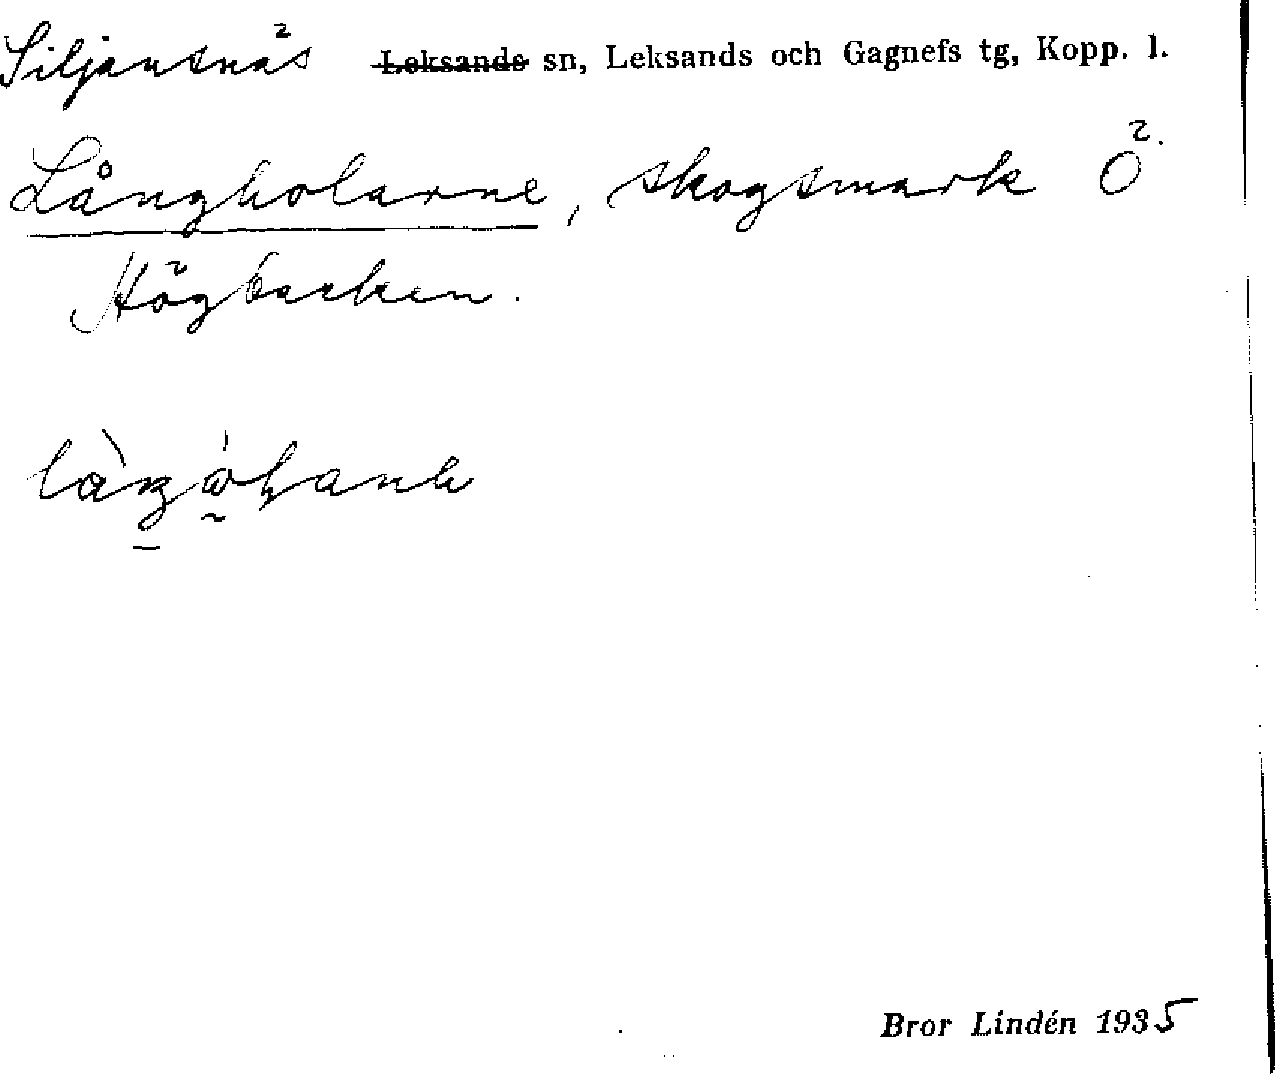 Siljansnäs Leksands sn, Leksands och Gagnefs tg, Kopp. l.
Långholarne, skogsmark Ö.
Högbacken.
Bror Lindén 1935